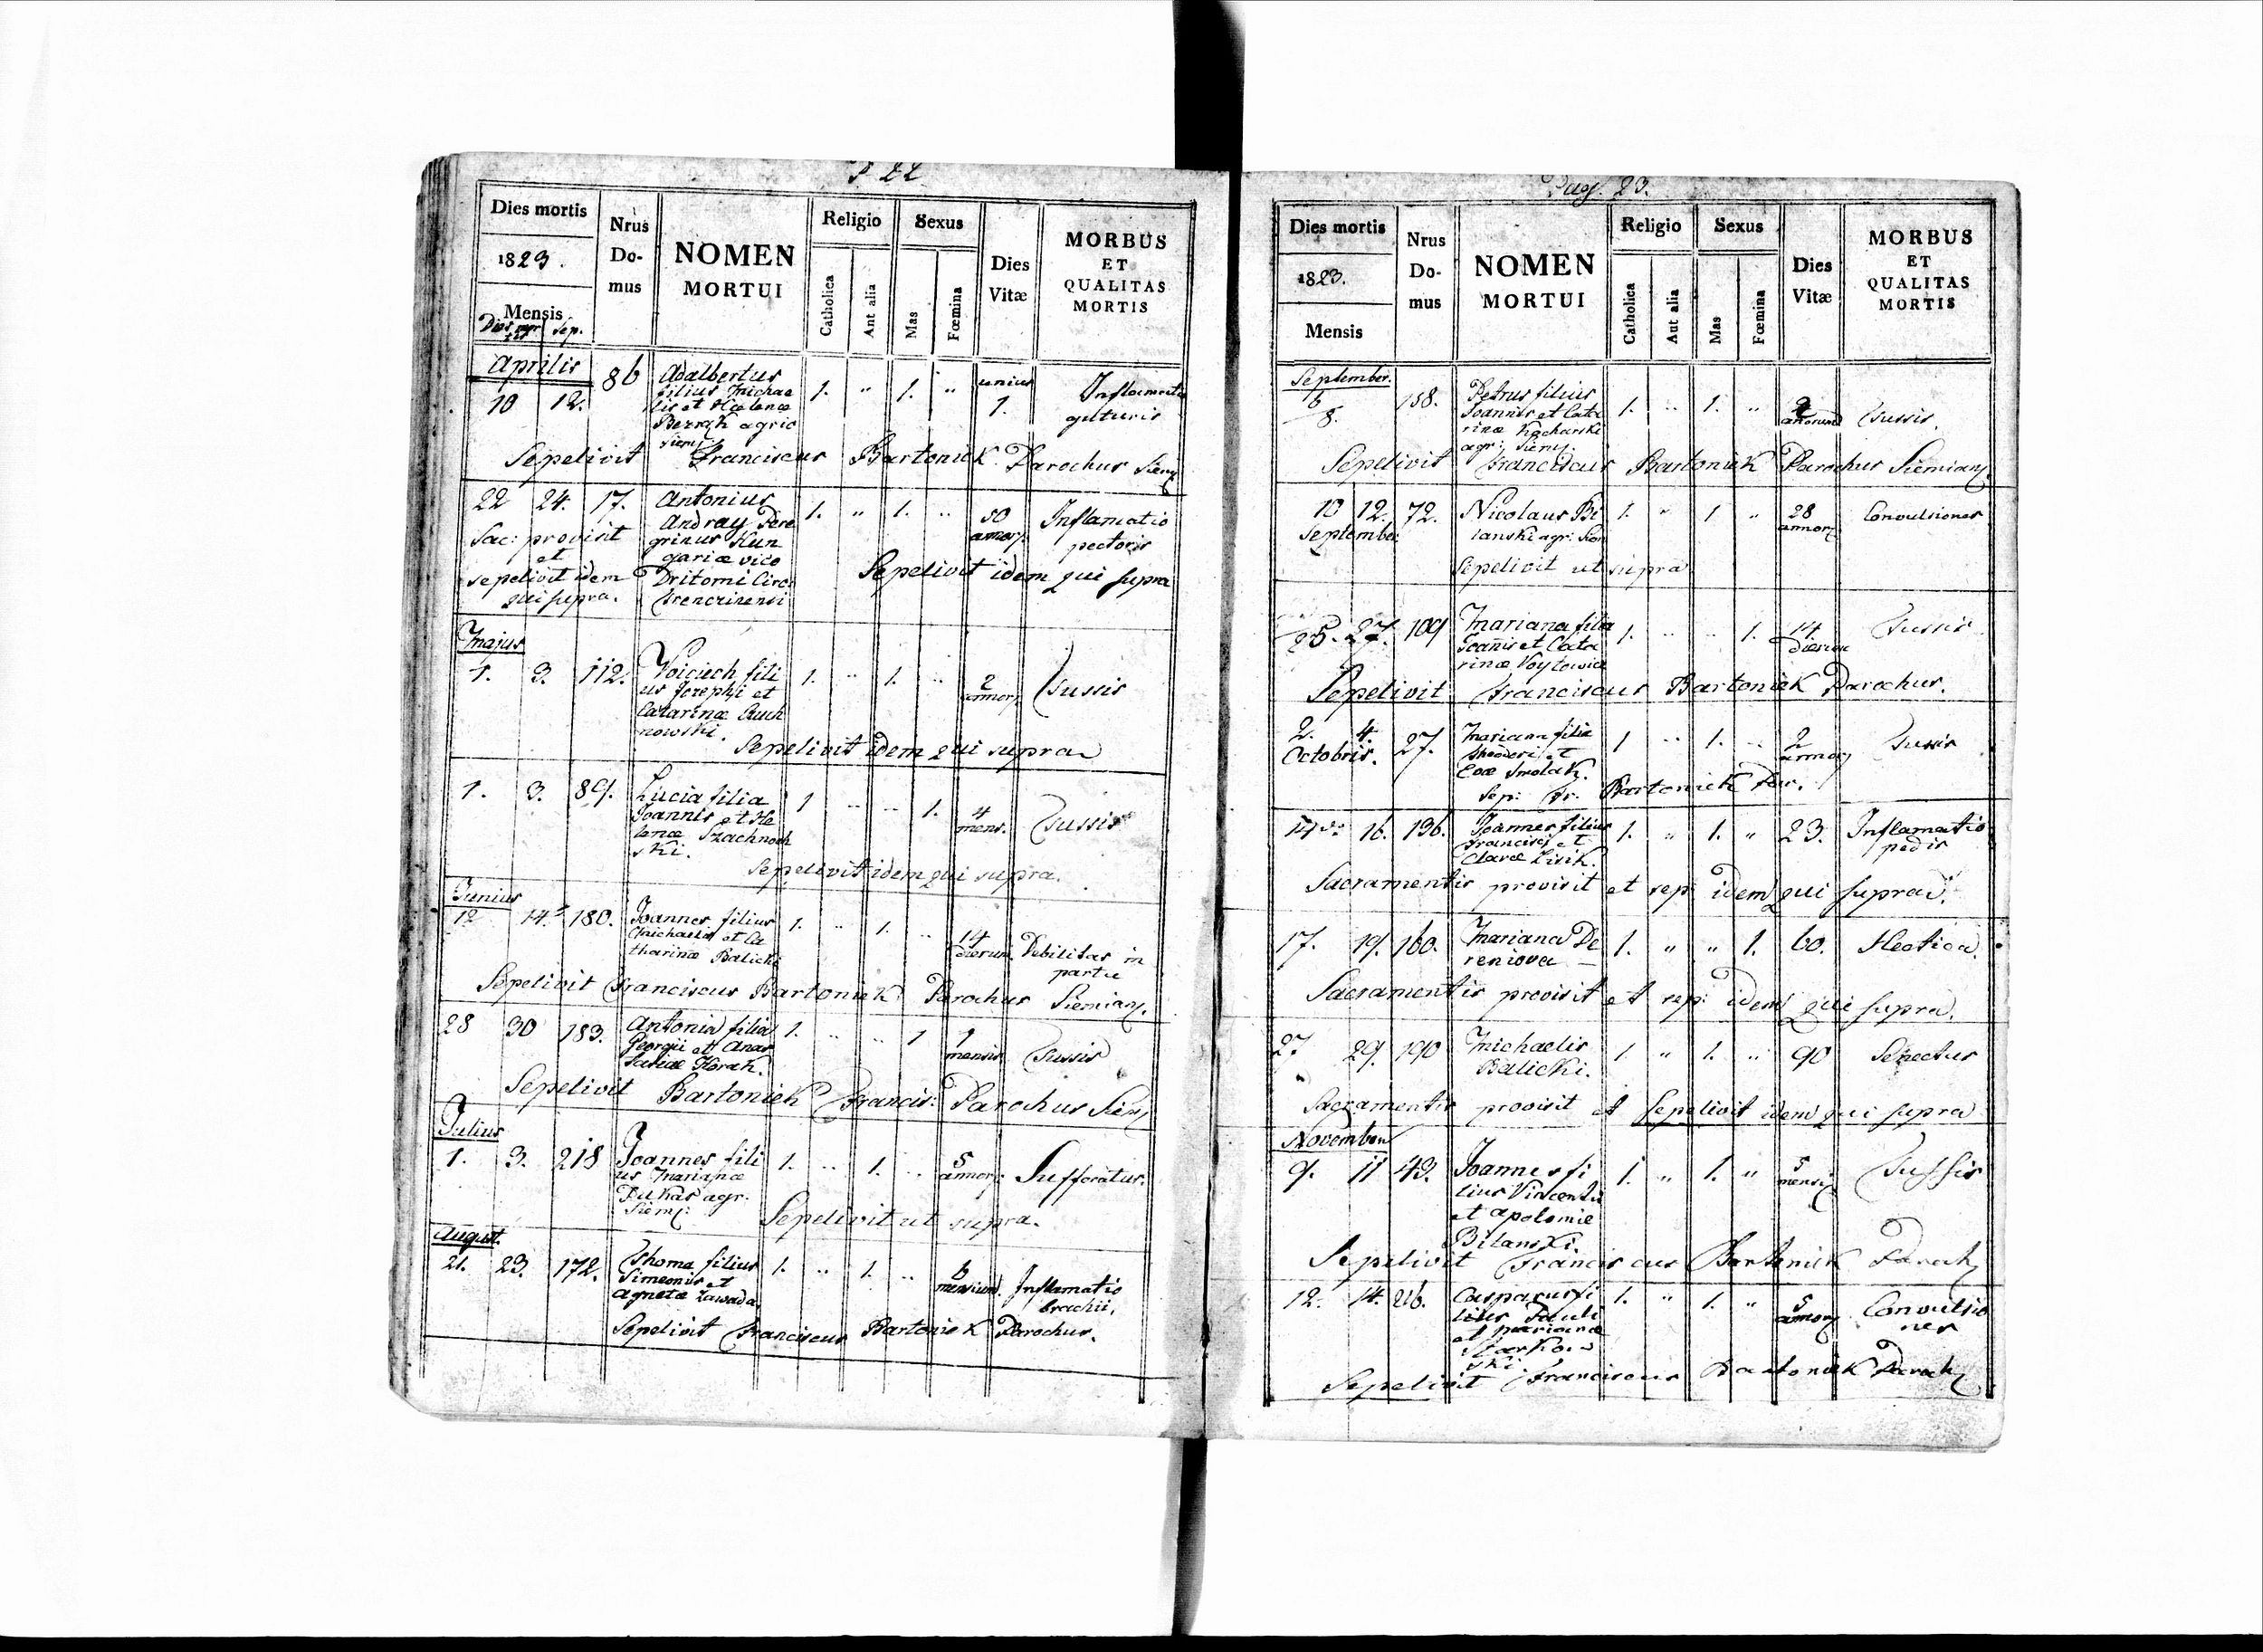 P 22
Dies mortis
Nrus Domus
NOMEN MORTUI
Religio
Sexus
Dies Vitæ
MORBUS ET QUALITAS MORTIS
1823.
Mensis
Catholica
Aut alia
Mas
Fœmina
Aprilis
10 12. 86 Adalbertus 1. " 1. " unius 1. Inflamatio gutturis
filius Michae
lis et Helenæ
agric
Siem:
Sepelivit Franciscus Bartoniek Parochus Siem
22 24. 17. Antonius 1. " 1. " 50 annor: Inflamatio pectoris
Andray Pere
grinus Hun
gariæ vico
Dritomi Circ:
Trencsinensi
Sac: provisit
et
sepelivit idem
qui supra.
Sepelivit idem qui supra
Majus
1. 3. 112. Voiciech fili 1. " 1. " 2 annor: Tussis
us Josephi et
Catarinæ Ruch
nowski.
Sepelivit idem qui supra
1. 3. 89. Lucia filia 1 " " 1. 4 mens. Tussis
Joannis et He
lenæ Szachnow
ski.
Sepelivit idem qui supra.
Junius
12 14. 180. Joannes filius 1. " 1. " 14 dierum Debilitas in partu
Michaelis et Ca
tharinæ Balicki
Sepelivit Franciscus Bartoniek Parochus Siemian.
28 30 183. Antonia filia 1. " " 1 1 mensis Tussis
Georgii et Anas
tasiæ Horak.
Sepelivit Bartoniek Francis: Parochus Siem
Julius
1. 3. 218 Joannes fili 1. " 1. " 5 annor: Suffocatus.
us Marianæ
Pukas agr:
Siem:
Sepelivit ut supra.
August.
21. 23. 172. Thoma filius 1. " 1. " 6 mensium. Inflamatio brachii,
Simeonis et
Agnetæ Zawada.
Sepelivit Franciscus Bartoniek Parochus.
Pag. 23.
Dies mortis
Nrus Domus
NOMEN MORTUI
Religio
Sexus
Dies Vitæ
MORBUS ET QUALITAS MORTIS
1823.
Mensis
Catholica
Aut alia
Mas
Fœmina
September.
6 8. 158. Petrus filius 1. " 1. " annorum Tussis.
Joannis et Cata
rinæ Kacharski
agr: Siem:
Sepelivit Franciscus Bartoniek Parochus Siemian
10 12. 72. Nicolaus Bi 1. " 1 " 28 annor: Convulsiones
September lanski agr: Siem
Sepelivit ut supra
25. 27. 109 Mariana filia 1. " " 1. 14 dierum Tussis
Joanis et Cata
rinæ Voytowicz
Sepelivit Franciscus Bartoniek Parochus.
2. 4. 27. Mariana filia 1 " 1. " 2 annor Tussis
Octobris. Theodori et
Evæ Smolak.
Sep: Fr. Bartoniek Par.
14 16. 136. Joannes filius 1. " 1. " 23. Inflamatio pedis
Francisci et
Claræ Lisik.
Sacramentis provisit et sep: idem qui supra.
17. 19. 160. Mariana De 1. " " 1. 60. Hectica.
reniova
Sacramentis provisit et sep: idem qui supra.
27 29. 190 Michaelis 1. " 1. " 90 Senectus
Balicki.
Sacramentis provisit et Sepelivit idem qui supra
November
9. 11 43. Joannes fi 1. " 1. " 5 mensi Tussis
lius Vincentii
et Apolonie
Bilanski.
Sepelivit Franciscus Bartoniek Paroch
12. 14. 216. Casparus fi 1. " 1. " 5 annor Convulsio nes
lius Pauli
et Marianæ
Starkow
ski.
Sepelivit Franciscus Bartoniek Paroch